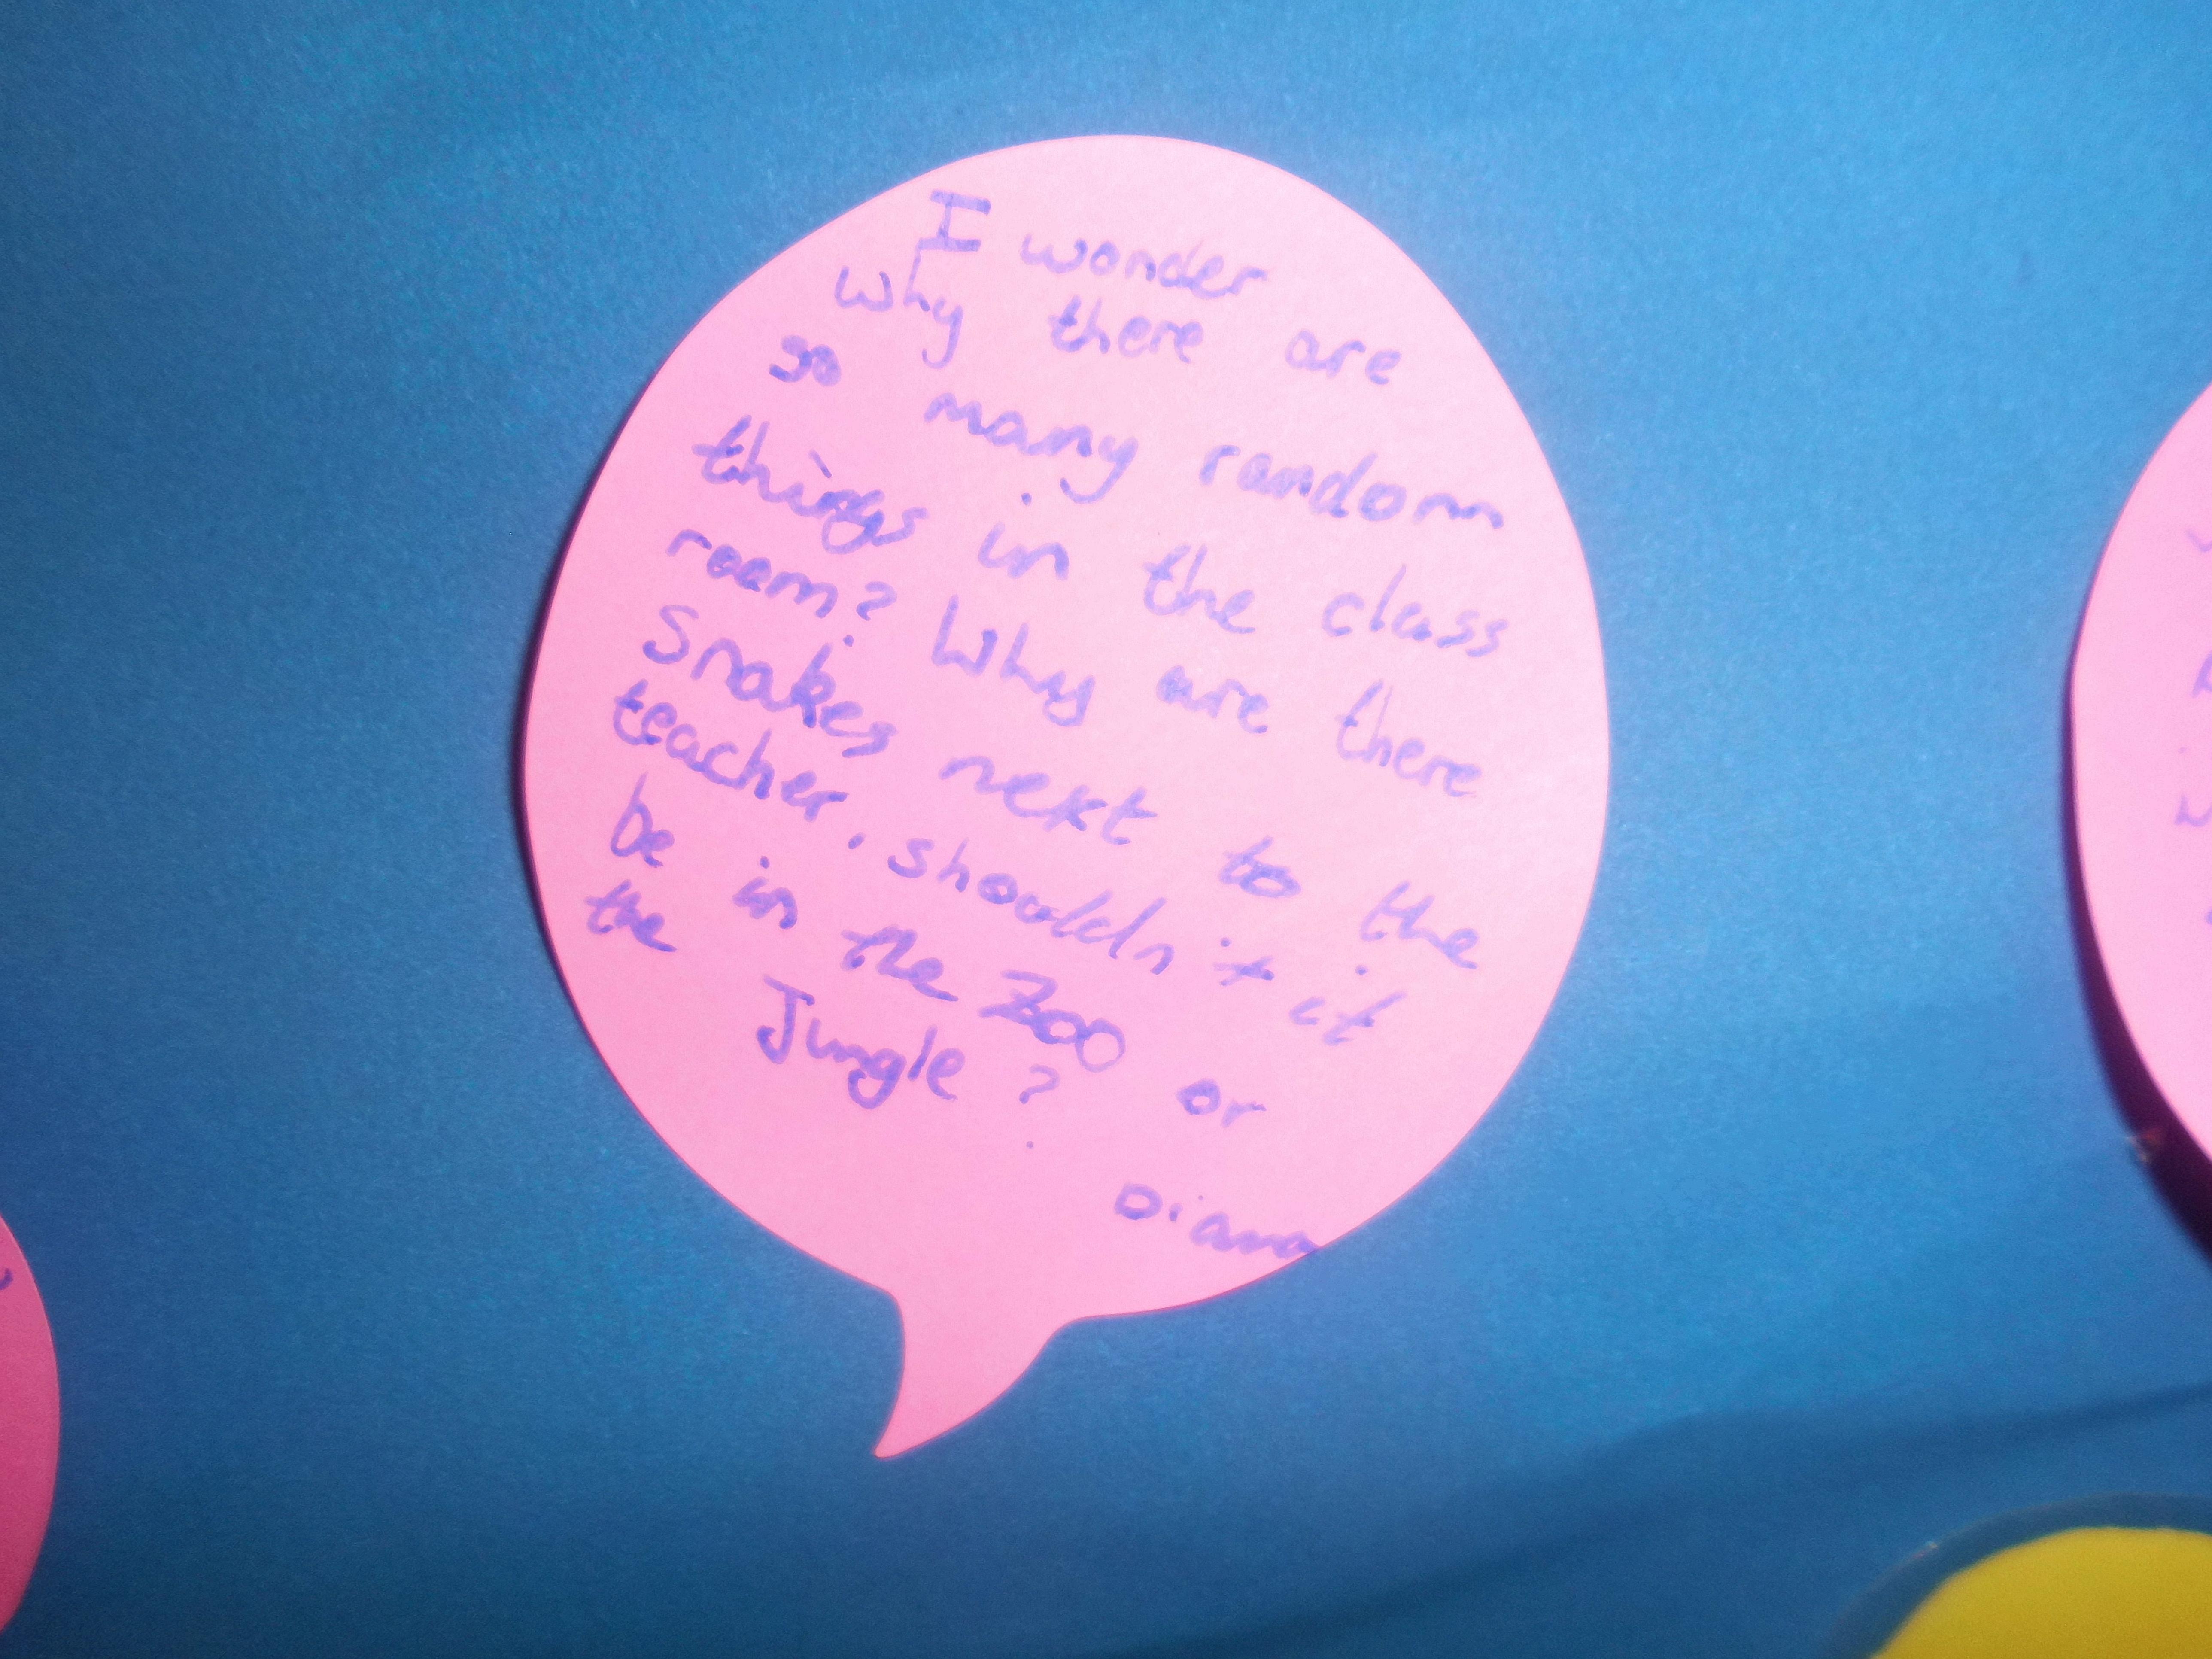 I wonder
why there are
so many random
things in the class
room? Why are there
Snakes next to the
teacher, shouldn't it
be in the zoo or
the Jungle?
Diana